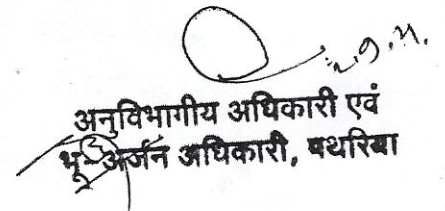 अनुविभागीय अधिकारी एवं
भू-अर्जन अधिकारी, पथरिया